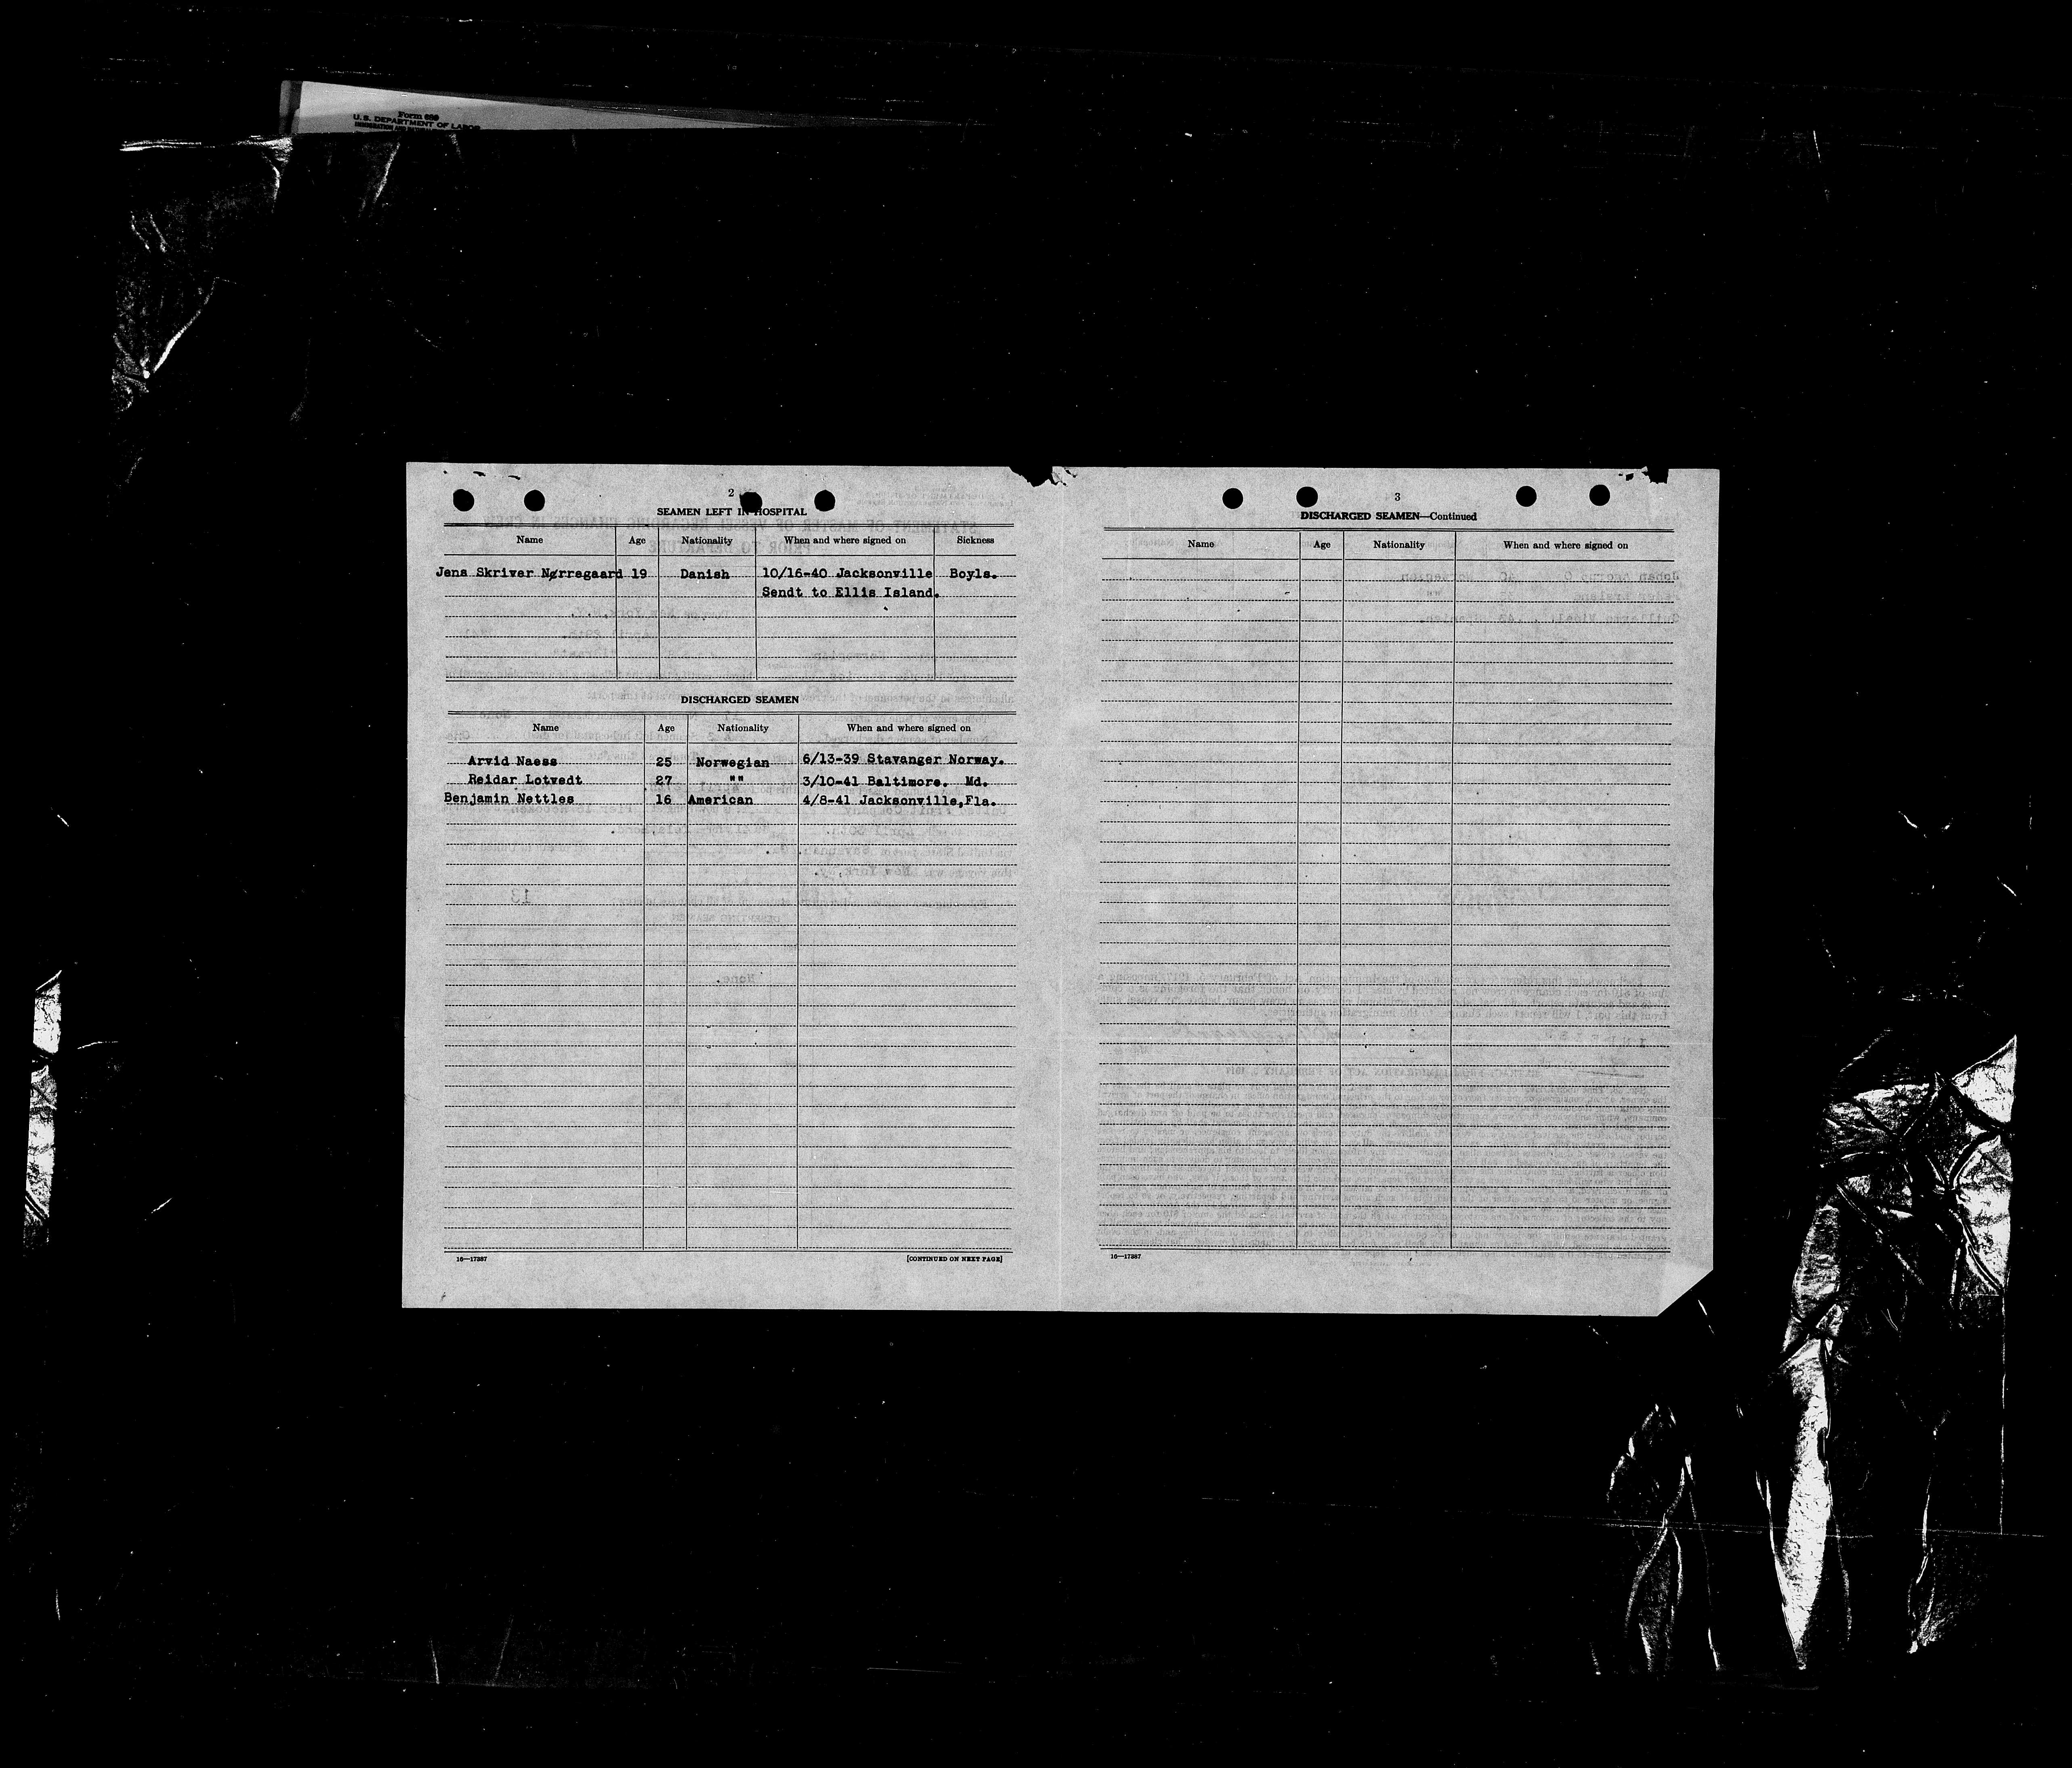 Form 689
U.S. DEPARTMENT OF LABOR
2
SEAMEN LEFT IN HOSPITAL
Name Age Nationality When and where signed on Sickness
Jens Skriver Nørregaard 19 Danish 10/16-40 Jacksonville Boyls.
Sendt to Ellis Island.
DISCHARGED SEAMEN
Name Age Nationality When and where signed on
Arvid Naess 25 Norwegian 6/13-39 Stavanger Norway.
Reidar Lotvedt 27 "" 3/10-41 Baltimore. Md.
Benjamin Nettles 16 American 4/8-41 Jacksonville,Fla.
16—17387 [CONTINUED ON NEXT PAGE]
3
DISCHARGED SEAMEN—Continued
Name Age Nationality When and where signed on
16—17387